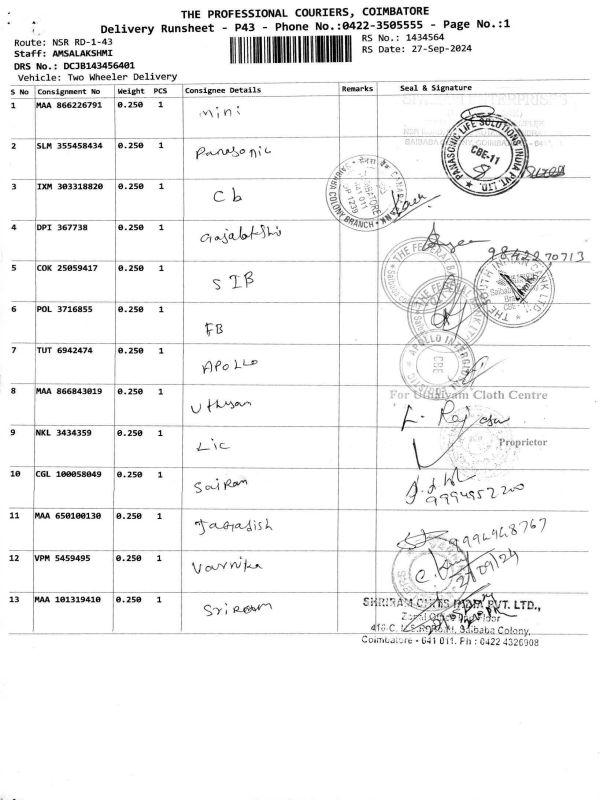 THE PROFESSIONAL COURIERS, COIMBATORE
Delivery Runsheet - P43 - Phone No.:0422-3505555 - Page No.:1
Route: NSR RD-1-43 RS No.: 1434564
Staff: AMSALAKSHMI RS Date: 27-Sep-2024
DRS No.: DCJB143456401
Vehicle: Two Wheeler Delivery
S No Consignment No Weight PCS Consignee Details Remarks Seal & Signature
1 MAA 866226791 0.250 1 mini
2 SLM 355458434 0.250 1 Panasonic PANASONIC LIFE SOLUTIONS INDIA PVT. LTD. CBE-11
3 IXM 303318820 0.250 1 Cb COLONY BRANCH
4 DPI 367738 0.250 1 Gajalakshmi 9842270713
5 COK 25059417 0.250 1 SIB THE FEDERAL BANK THE SOUTH INDIAN BANK LTD.
6 POL 3716855 0.250 1 FB THE FEDERAL
7 TUT 6942474 0.250 1 APOLLO APOLLO CBE
8 MAA 866843019 0.250 1 Uthyam For Uthaiyam Cloth Centre
9 NKL 3434359 0.250 1 Lic Proprietor
10 CGL 100058049 0.250 1 Sairam 9994952200
11 MAA 650100130 0.250 1 Jagadish 9994948767
12 VPM 5459495 0.250 1 Varnika 27/09/24
13 MAA 101319410 0.250 1 Sriram SHRIRAM CHITS INDIA PVT. LTD.,
Saibaba Colony,
Coimbatore - 641 011. Ph : 0422 4326908